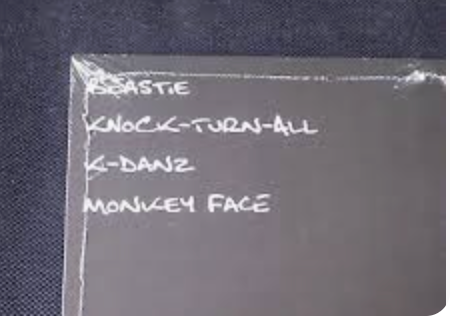 BEASTIE
KNOCK-TURN-ALL
K-DANZ
MONKEY FACE